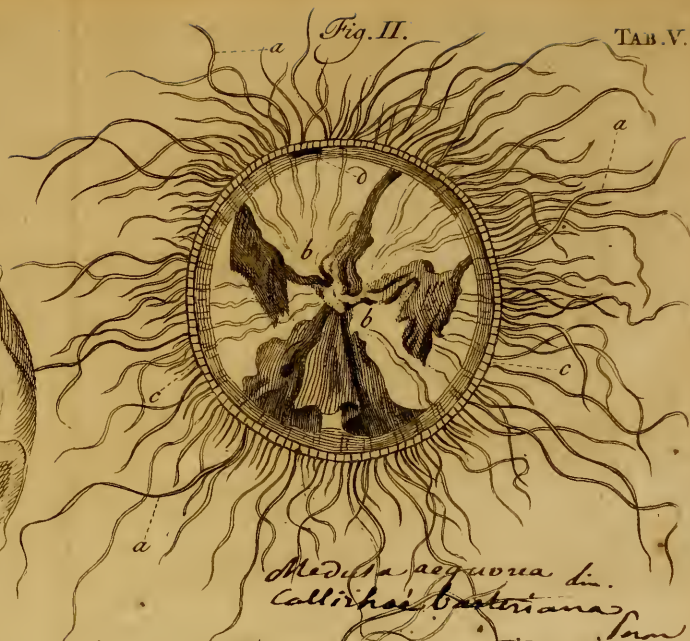 Fig. II.
TAB. V.
a
a
d
b
b
c
c
a
Medusa aequorea
Callirhoe basteriana